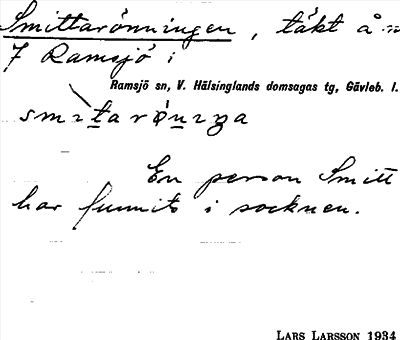 Smittarönningen, täkt å
7 Ramsjö i
Ramsjö sn, V. Hälsinglands domsagas tg, Gävleb. l.
En person Smitt
har funnits i socknen.
LARS LARSSON 1934